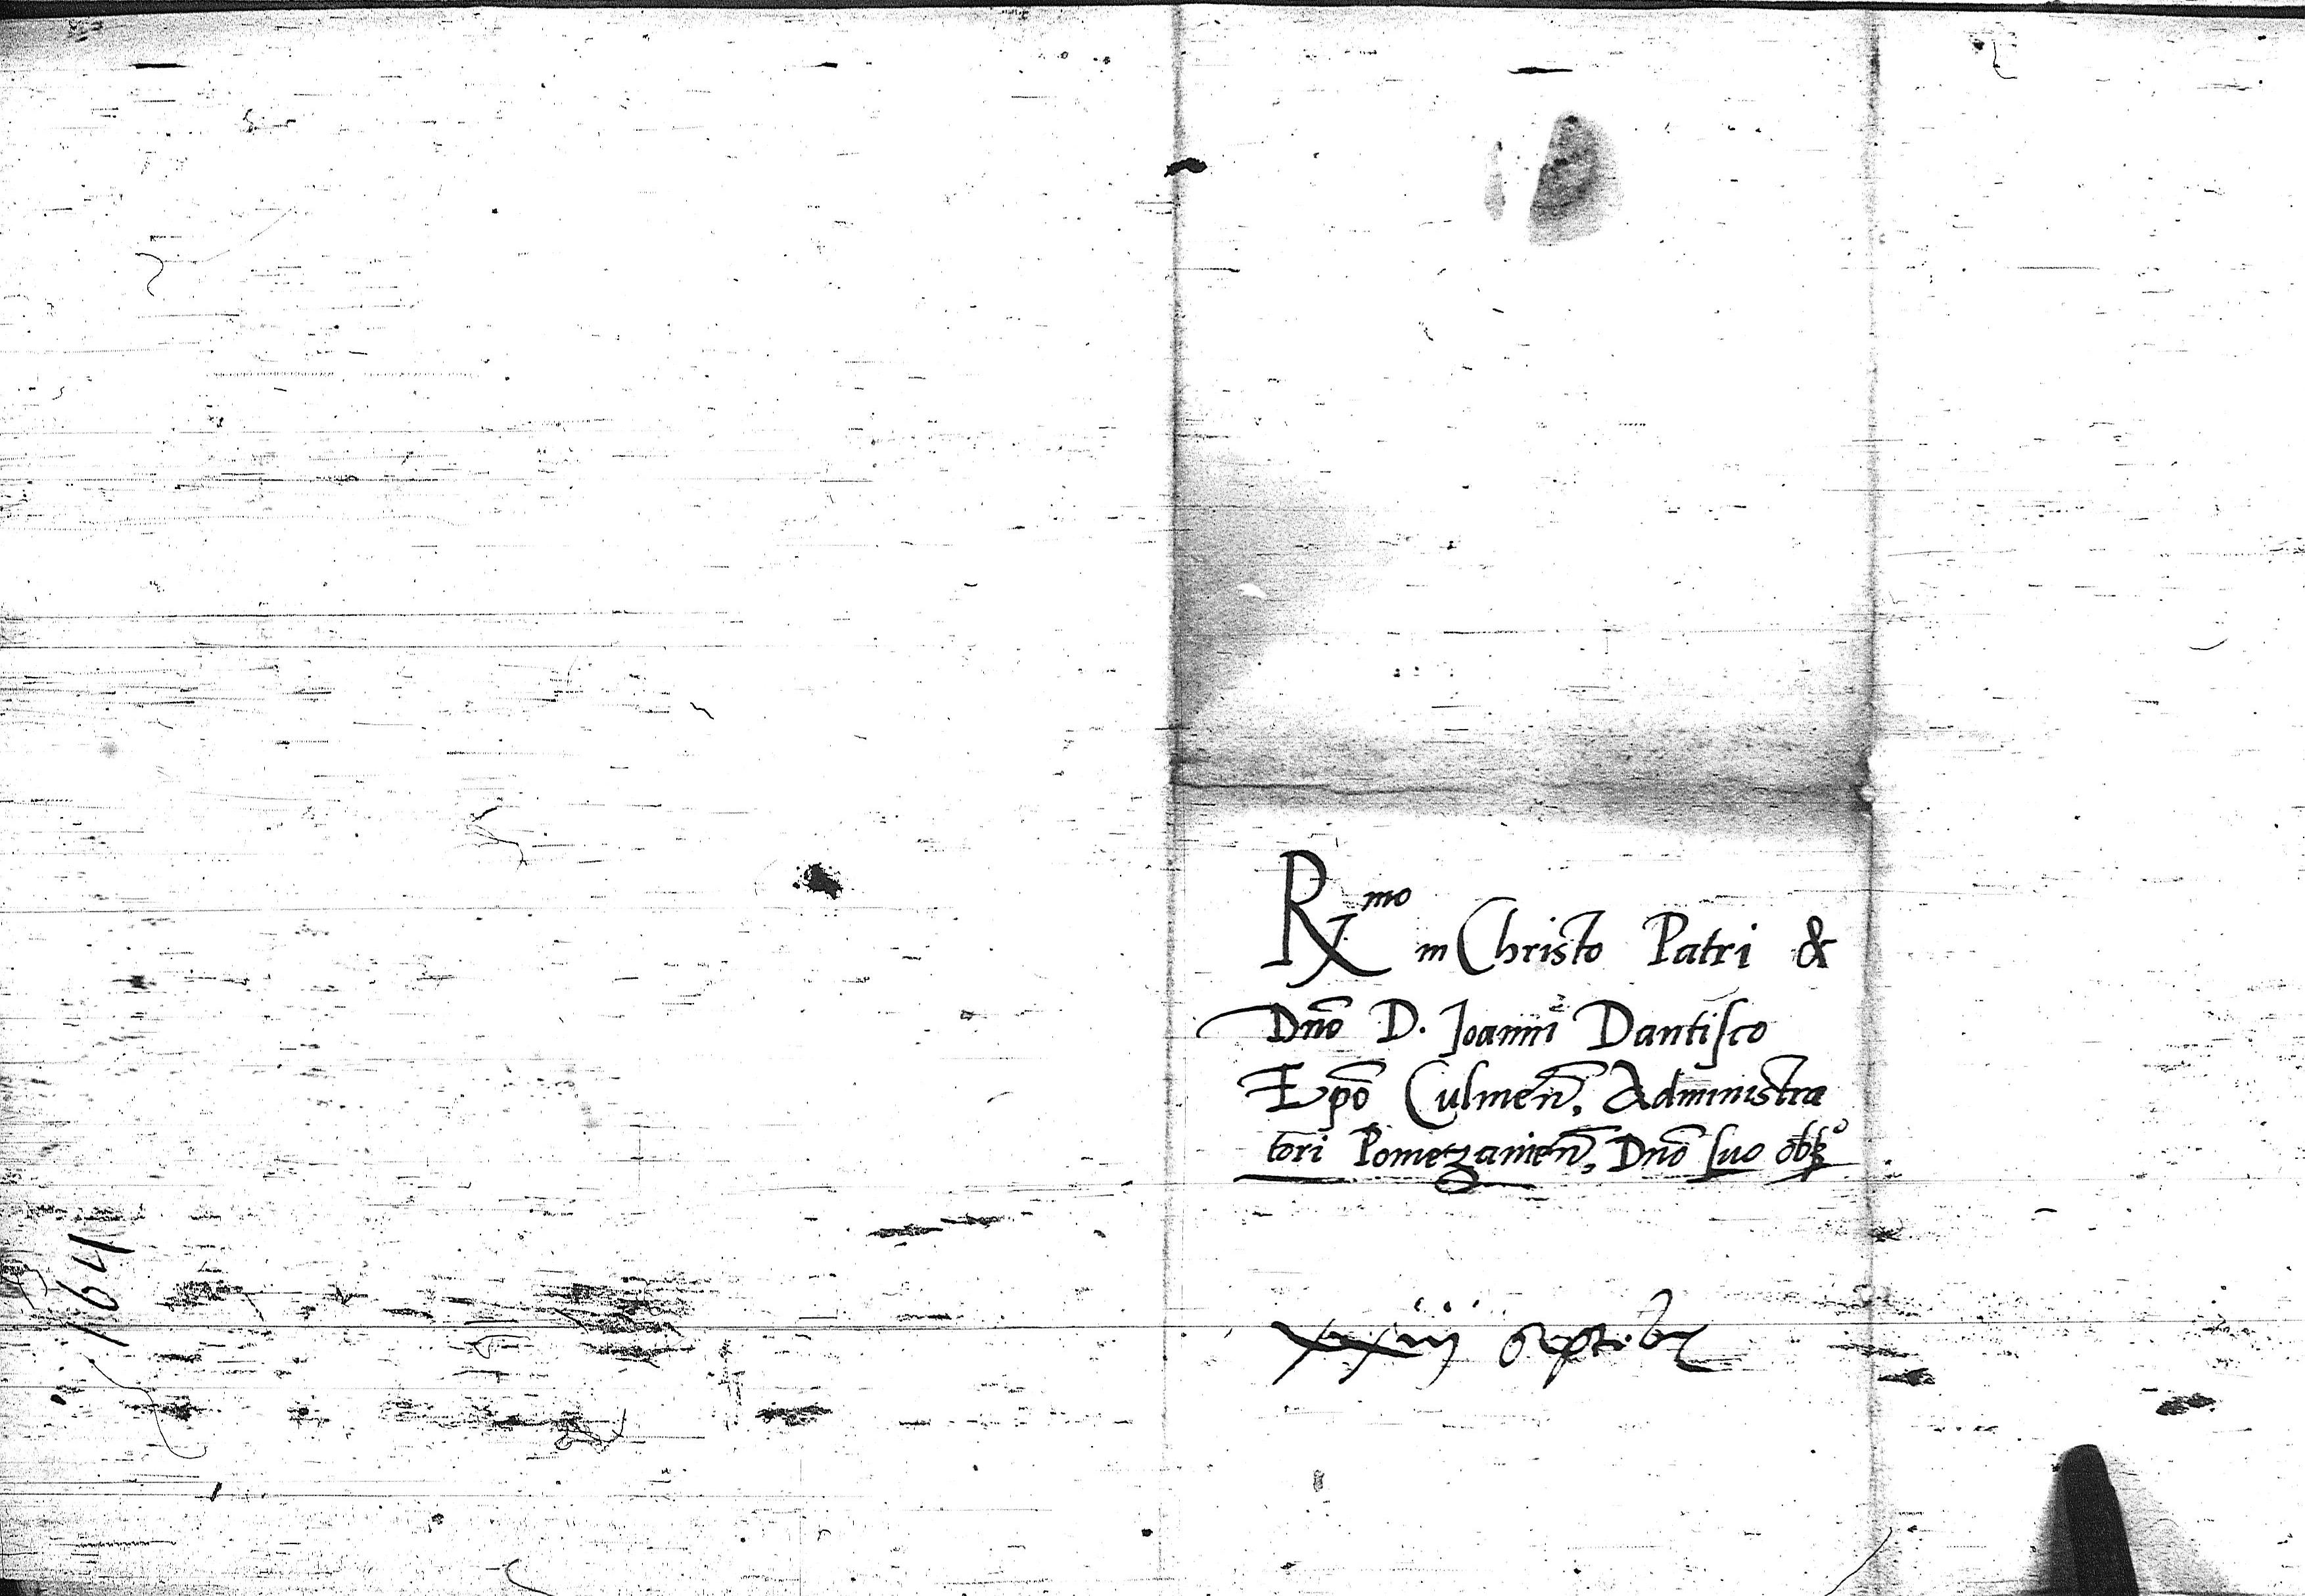 Rmo in Christo Patri &
Dno D. Ioanni Dantisco
Epo Culmen. Administra
tori Pomezanien. Dno suo
xxiij Septēbr
164